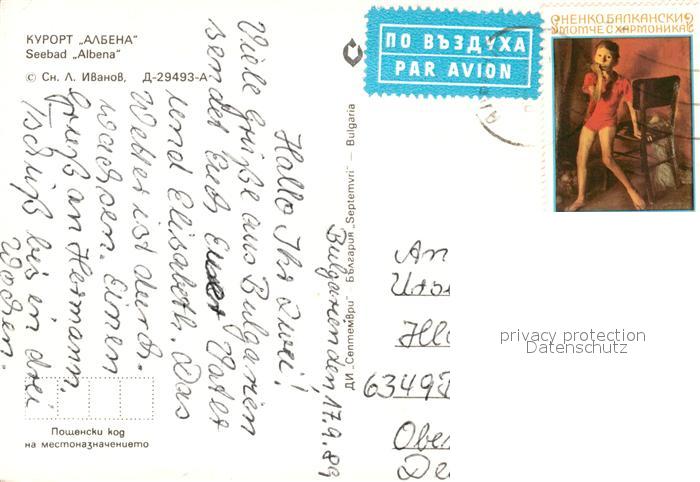 КУРОРТ „АЛБЕНА“
Seebad „Albena“
© Сн. Л. Иванов, Д-29493-А
Bulgarien den, 17.9.89
Hallo Ihr zwei!
Viele Grüße aus Bulgarien
sendet Euch Euer Vater
und Elisabeth. Das
Wetter ist durch-
wachsen. Einen
Gruß an Hermann.
Tschüß bis in drei
Wochen.
Пощенски код
на местоназначението
ДИ „Септември“ — България „Septemvri“ — Bulgaria
ПО ВЪЗДУХА
PAR AVION
НЕНКО БАЛКАНСКИ
МОМЧЕ С ХАРМОНИКА
An
6349
privacy protection
Datenschutz